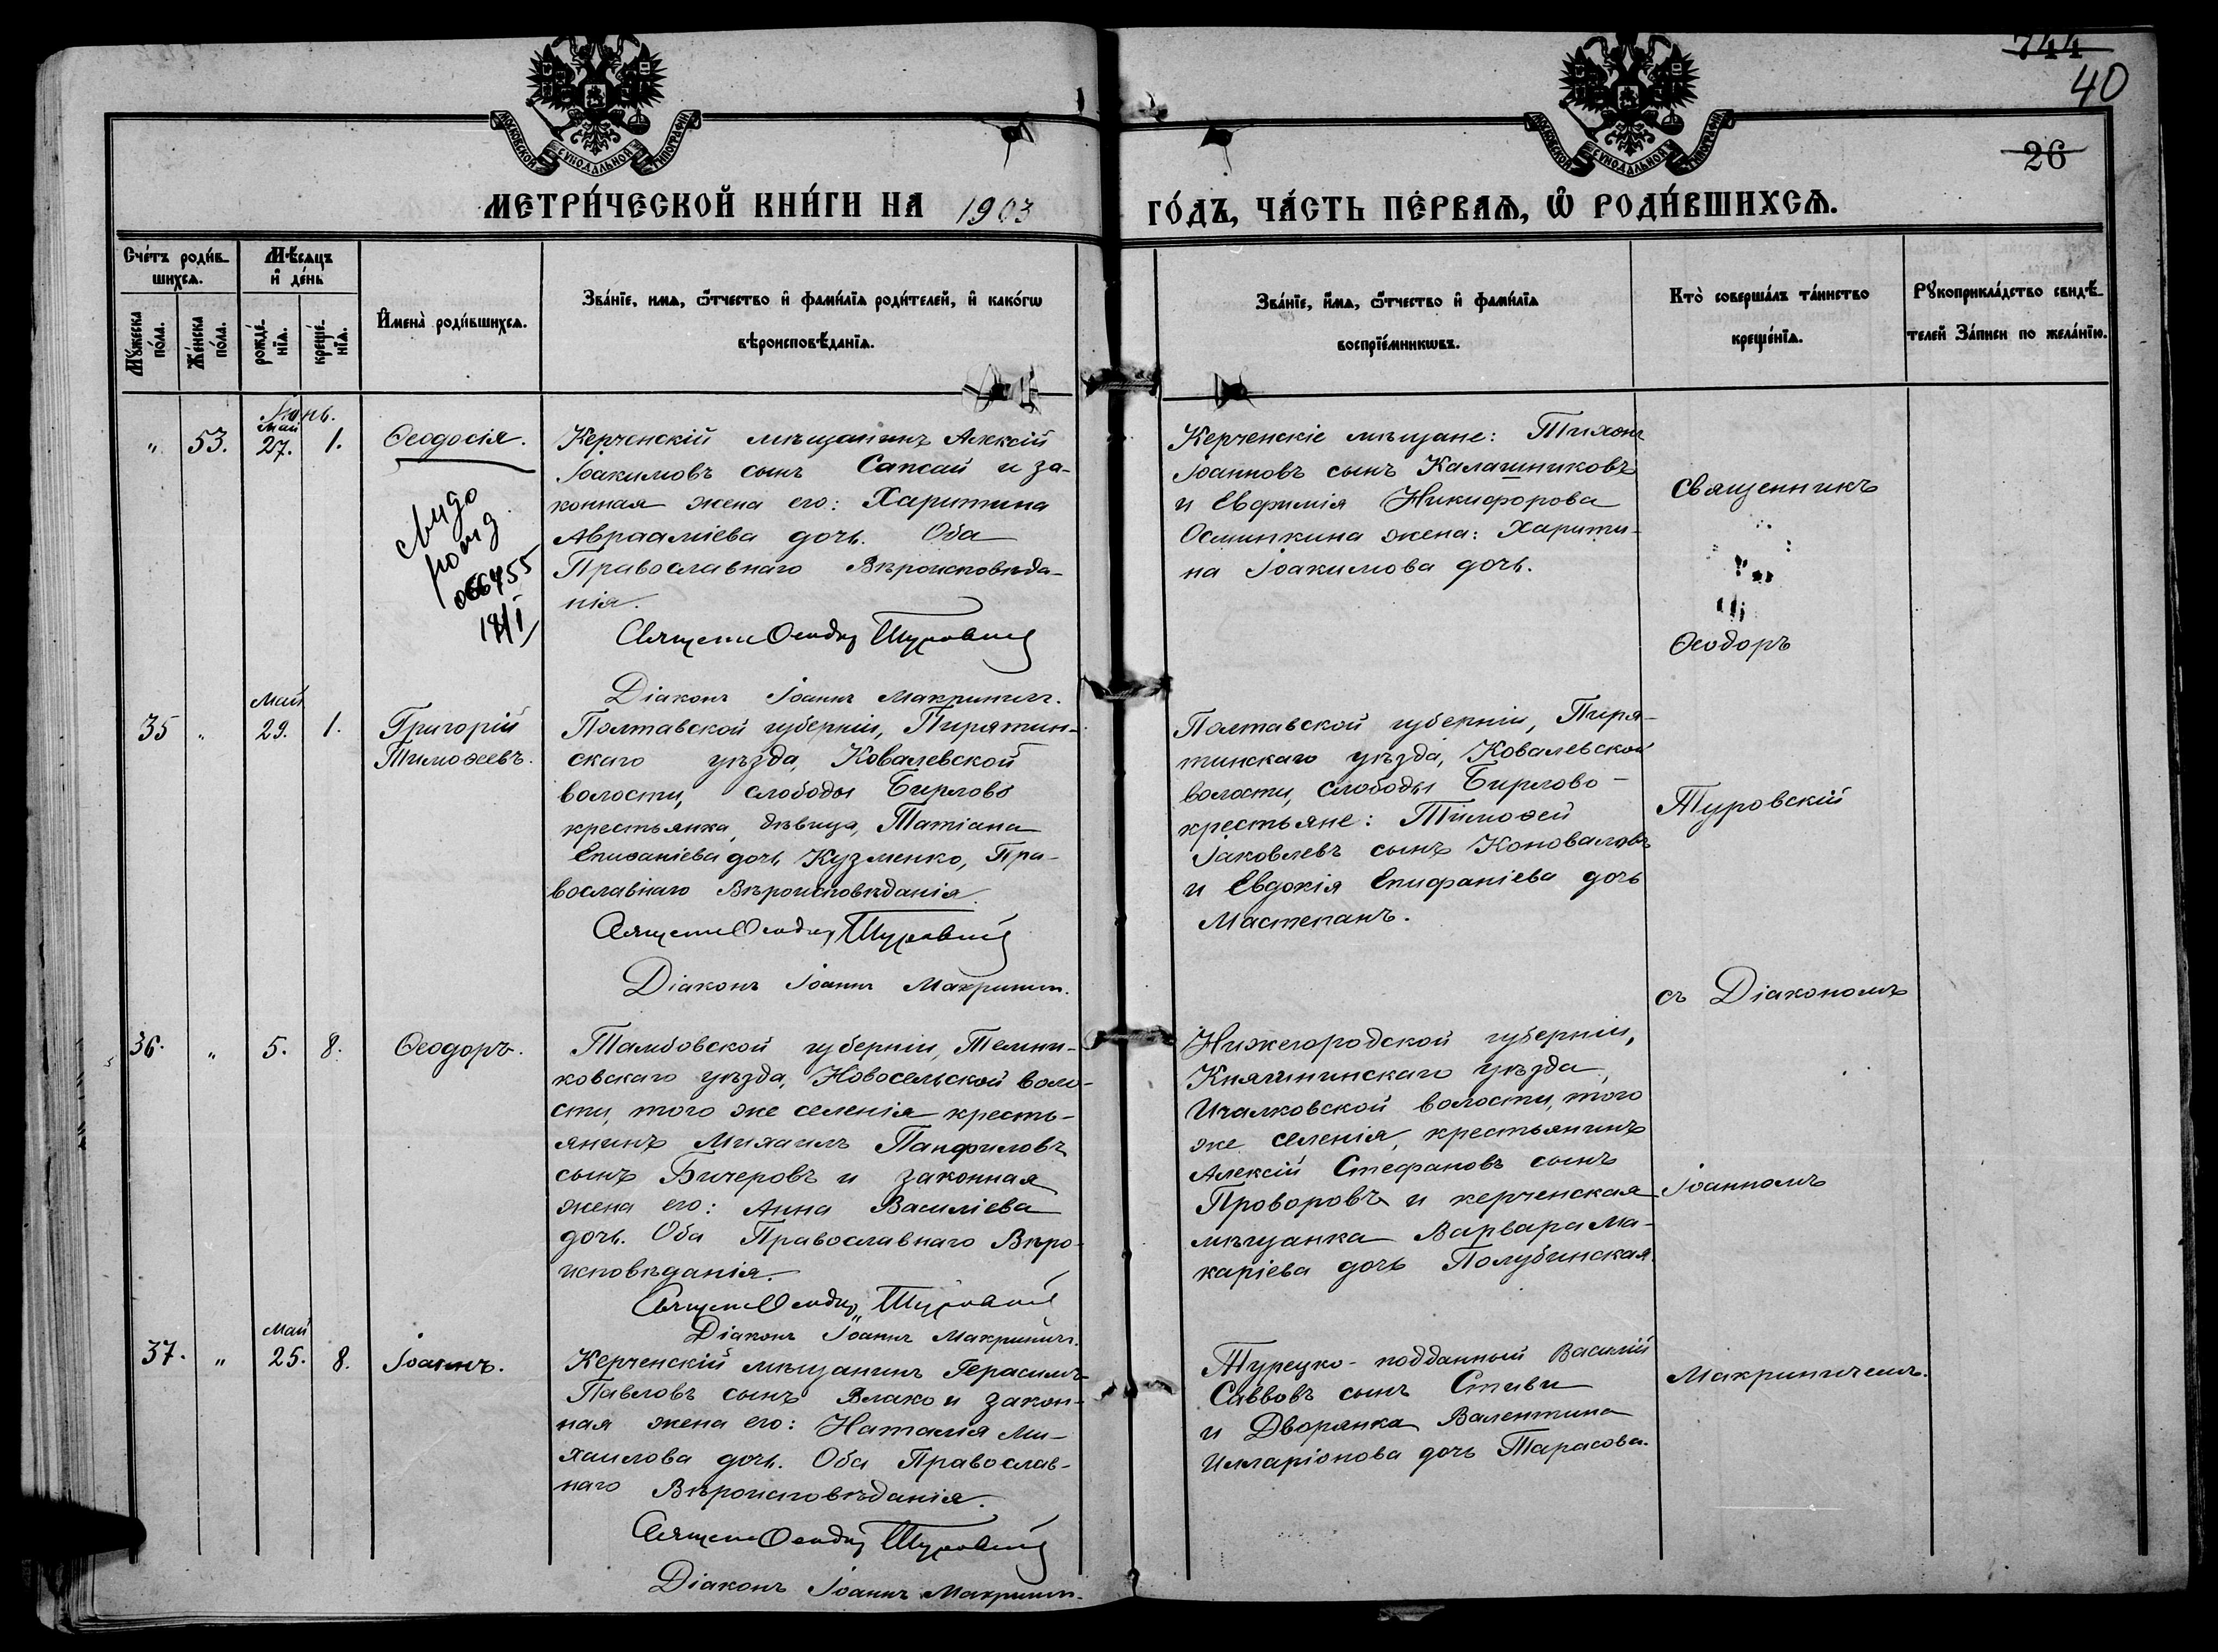 744
40
26
МОСКОВСКОЙ СѴНОДАЛЬНОЙ ТИПОГРАФІИ
МОСКОВСКОЙ СѴНОДАЛЬНОЙ ТИПОГРАФІИ
МЕТРИ́ЧЕСКОЙ КНИ́ГИ НА 1903
ГО́ДЪ, ЧА́СТЬ ПЕ́РВАѦ, Ѽ РОДИ́ВШИХСѦ.
Сче́тъ роди́в-
шихсѧ.
Мꙋ́жеска по́ла.
Же́нска по́ла.
Мѣ́сѧцъ
и҆ де́нь
рожде́-
нїѧ.
креще́-
нїѧ.
И҆мена̀ роди́вшихсѧ.
Зва́нїе, имѧ, ѻ҆́тчество и҆ фами́лїѧ роди́телей, и҆ како́гѡ
вѣроисповѣ́данїѧ.
Зва́нїе, и҆́мѧ, ѻ҆́тчество и҆ фами́лїѧ
воспрїе́мникѡвъ.
Кто̀ соверша́лъ та́инство
креще́нїѧ.
Рꙋкоприкла́дство свидѣ́-
телей За́писи по жела́нїю.
Іюнь.
Май
" 53. 27. 1. Ѳеодосія.
Керченскій мѣщанинъ Алексій
Іоакимовъ сынъ Сапсай и за-
конная жена его: Харитина
Авраамiева дочь. Оба
Православнаго Вѣроисповѣда-
нія.
Священ Ѳеодор Туровскій
Діаконъ Іоаннъ Макриничъ.
Керченскіе мѣщане: Тихонъ
Іоанновъ сынъ Калашниковъ
и Евфимія Никифорова
Осминкина жена: Харити-
на Іоакимова дочь.
Священникъ
Ѳеодоръ
Май
35 " 29. 1. Григорій
Тимоѳеевъ.
Полтавской губерніи, Пирятин-
скаго уѣзда, Ковалевской
волости, слободы Бирлово
крестьянка, дѣвица, Татіана
Епифаніева дочь Кузменко, Пра-
вославнаго Вѣроисповѣданія.
Священ Ѳеодор Туровскій
Діаконъ Іоаннъ Макринич.
Полтавской губерніи, Пиря-
тинскаго уѣзда, Ковалевской
волости, слободы Бирлово-
крестьяне: Тимоѳей
Іаковлевъ сынъ Коноваловъ
и Евдокія Епифаніева дочь
Мастепанъ.
Туровскій
съ Діакономъ
36. " 5. 8. Ѳеодоръ.
Тамбовской губерніи, Темни-
ковскаго уѣзда, Новосельской воло-
сти, того же селенія кресть-
янинъ Михаилъ Панфиловъ
сынъ Бичеровъ и законная
жена его: Анна Василіева
дочь. Оба Православнаго Вѣро-
исповѣданія.
Священ Ѳеодор Туровскій
Діаконъ Іоаннъ Макриничъ.
Нижегородской губерніи,
Княгининскаго уѣзда,
Ичалковской волости, того
же селенія, крестьянинъ
Алексій Стефановъ сынъ
Проворовъ и керченская
мѣщанка Варвара Ма-
каріева дочь Полубинская.
Іоанномъ
Май
37. " 25. 8. Іоаннъ.
Керченскій мѣщанинъ Герасимъ
Павловъ сынъ Влахо и закон-
ная жена его: Наталія Ми-
хаилова дочь. Оба Православ-
наго Вѣроисповѣданія.
Священ Ѳеодор Туровскій
Діаконъ Іоаннъ Макринич.
Турецко-подданный Василій
Саввовъ сынъ Стави
и Дворянка Валентина
Илларіонова дочь Тарасова.
Макриничемъ.